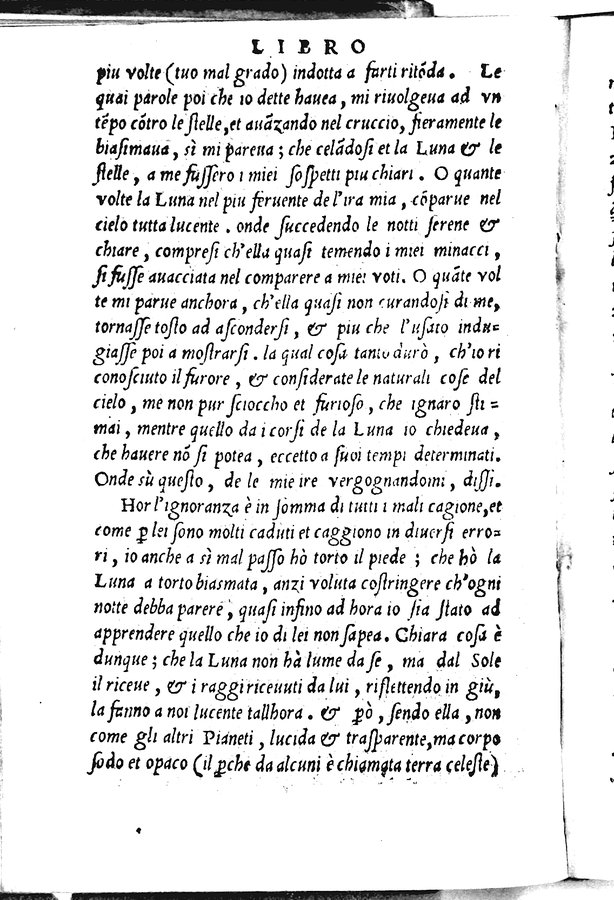 LIBRO
piu volte (tuo mal grado) indotta a farti ritõda. Le
quai parole poi che io dette hauea, mi riuolgeua ad vn
tẽpo cõtro le stelle, et auãzando nel cruccio, fieramente le
biasimaua, sì mi pareua; che celãdosi et la Luna & le
stelle, a me fussero i miei sospetti piu chiari. O quante
volte la Luna nel piu feruente de l'ira mia, cõparue nel
cielo tutta lucente. onde succedendo le notti serene &
chiare, compresi ch'ella quasi temendo i miei minacci,
si fusse auacciata nel comparere a miei voti. O quãte vol
te mi parue anchora, ch'ella quasi non curandosi di me,
tornasse tosto ad ascondersi, & piu che l'usato indu-
giasse poi a mostrarsi. la qual cosa tanto durò, ch'io ri
conosciuto il furore, & considerate le naturali cose del
cielo, me non pur scioccho et furioso, che ignaro sti=
mai, mentre quello da i corsi de la Luna io chiedeua,
che hauere nõ si potea, eccetto a suoi tempi determinati.
Onde sù questo, de le mie ire vergognandomi, dissi.
Hor l'ignoranza è in somma di tutti i mali cagione, et
come ꝑ lei sono molti caduti et caggiono in diuersi erro-
ri, io anche a sì mal passo hò torto il piede; che hò la
Luna a torto biasmata, anzi voluta costringere ch'ogni
notte debba parere, quasi infino ad hora io sia stato ad
apprendere quello che io di lei non sapea. Chiara cosa è
dunque; che la Luna non hà lume da se, ma dal Sole
il riceue, & i raggi riceuuti da lui, riflettendo in giù,
la fanno a noi lucente tallhora. & ꝑò, sendo ella, non
come gli altri Pianeti, lucida & trasparente, ma corpo
sodo et opaco (il ꝑche da alcuni è chiamata terra celeste)